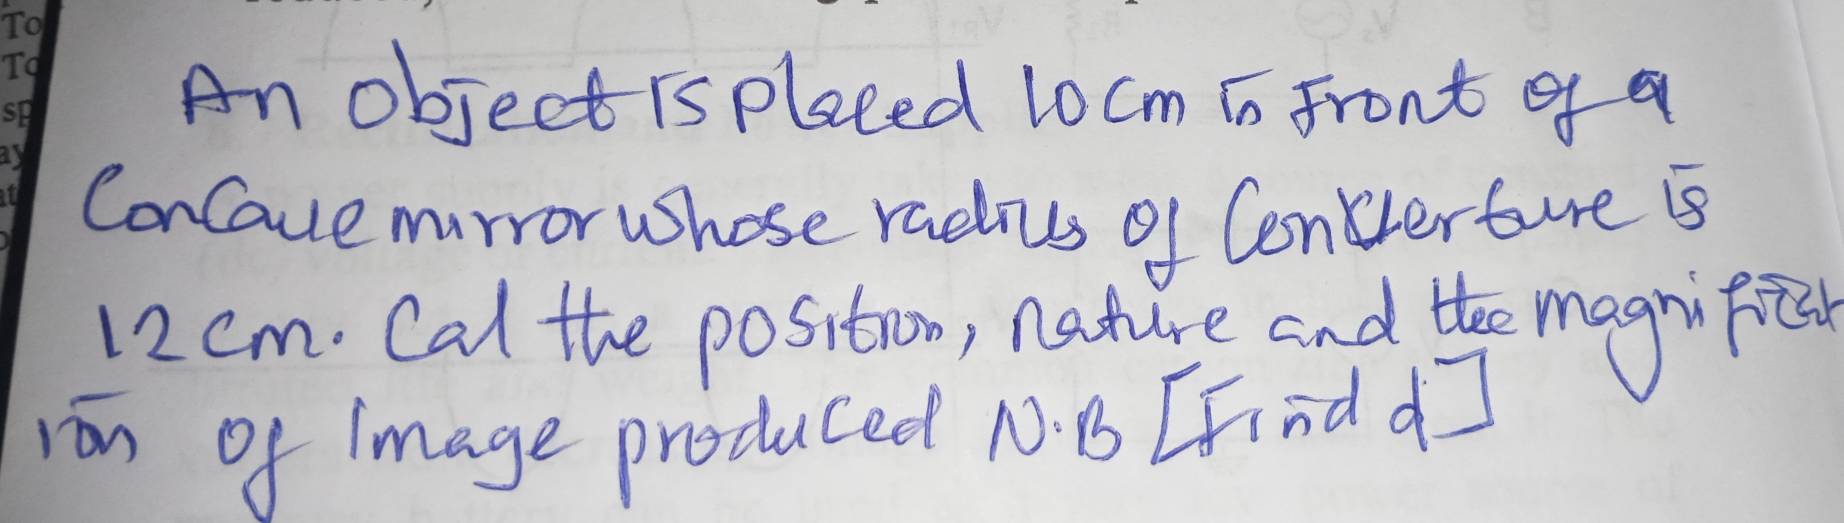 To
To
sp
ay
at
An object is placed 10cm in front of a
Concave mirror whose radius of Conkterture is
12cm. Cal the position, nature and the magnificat
ion of Image produced N.B [Find d]